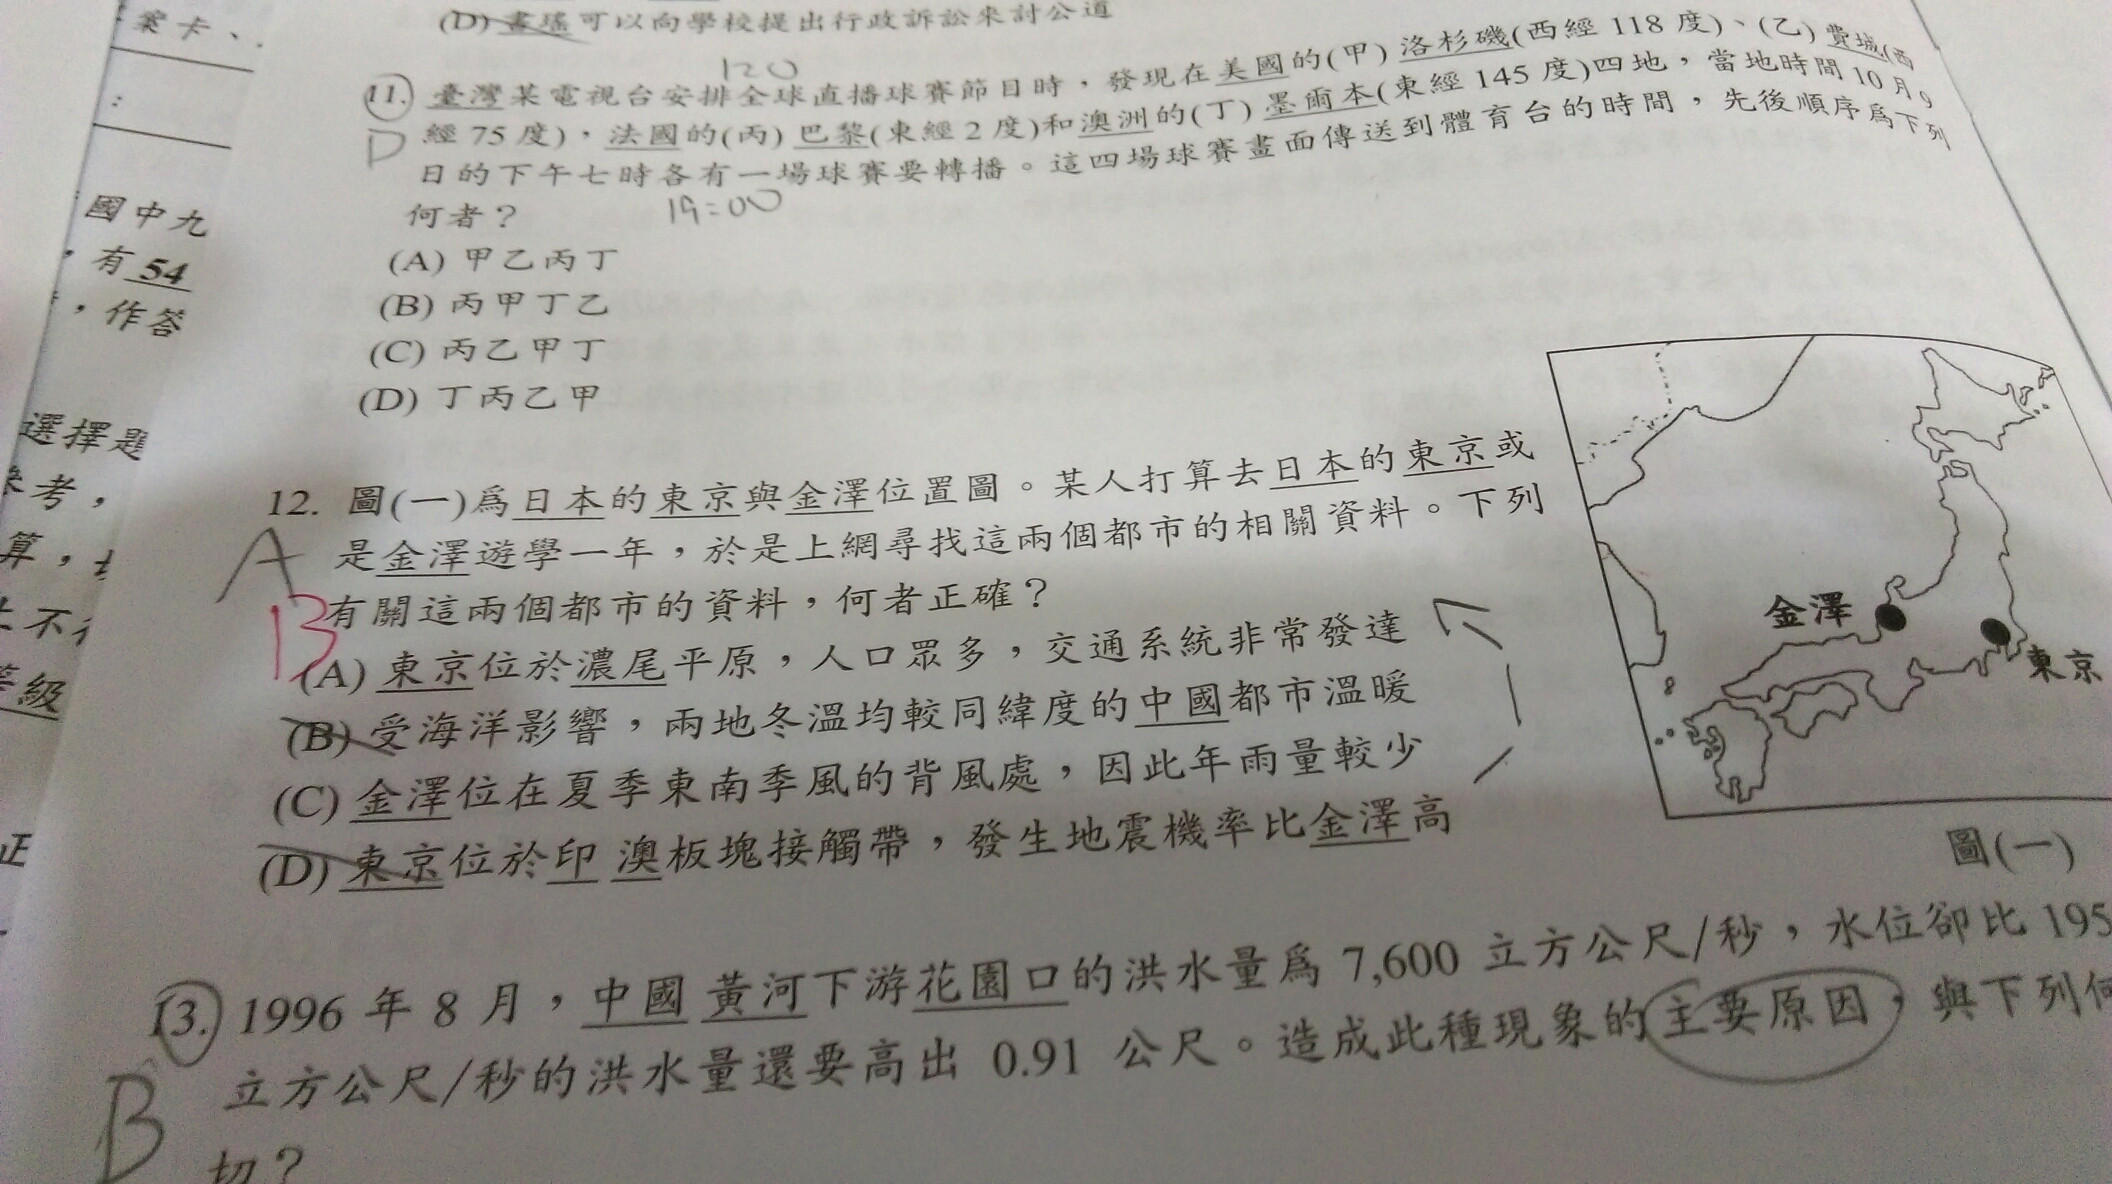 案卡、
:
國中九
，有54
，作答
選擇題
考，
算，
不
級
正
(D) 書瑤可以向學校提出行政訴訟來討公道
120
11. 臺灣某電視台安排全球直播球賽節目時，發現在美國的(甲) 洛杉磯(西經 118 度)、(乙) 費城(西
D
經 75 度)，法國的(丙) 巴黎(東經 2 度)和澳洲的(丁) 墨爾本(東經 145 度)四地，當地時間 10 月 9
日的下午七時各有一場球賽要轉播。這四場球賽畫面傳送到體育台的時間，先後順序為下列
何者？
19:00
(A) 甲乙丙丁
(B) 丙甲丁乙
(C) 丙乙甲丁
(D) 丁丙乙甲
12. 圖(一)為日本的東京與金澤位置圖。某人打算去日本的東京或
A
是金澤遊學一年，於是上網尋找這兩個都市的相關資料。下列
B
有關這兩個都市的資料，何者正確？
(A) 東京位於濃尾平原，人口眾多，交通系統非常發達
(B) 受海洋影響，兩地冬溫均較同緯度的中國都市溫暖
(C) 金澤位在夏季東南季風的背風處，因此年雨量較少
(D) 東京位於印 澳板塊接觸帶，發生地震機率比金澤高
金澤
東京
圖(一)
13. 1996 年 8 月，中國 黃河下游花園口的洪水量為 7,600 立方公尺/秒，水位卻比 195
立方公尺/秒的洪水量還要高出 0.91 公尺。造成此種現象的主要原因，與下列何
B
切？